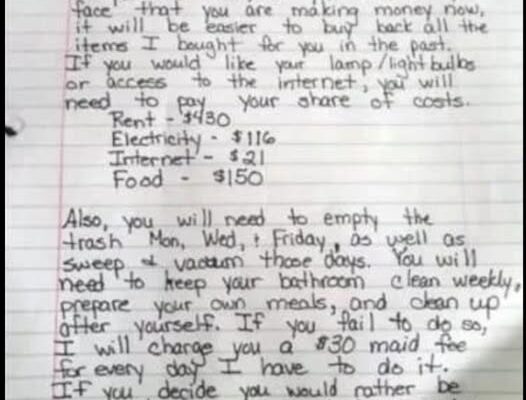 face" that you are making money now,
it will be easier to buy back all the
items I bought for you in the past.
If you would like your lamp/lightbulbs
or access to the internet, you will
need to pay your share of costs.
Rent - $430
Electricity - $116
Internet - $21
Food - $150
Also, you will need to empty the
trash Mon, Wed, & Friday, as well as
sweep & vacuum those days. You will
need to keep your bathroom clean weekly,
prepare your own meals, and clean up
after yourself. If you fail to do so,
I will charge you a $30 maid fee
for every day I have to do it.
If you decide you would rather be